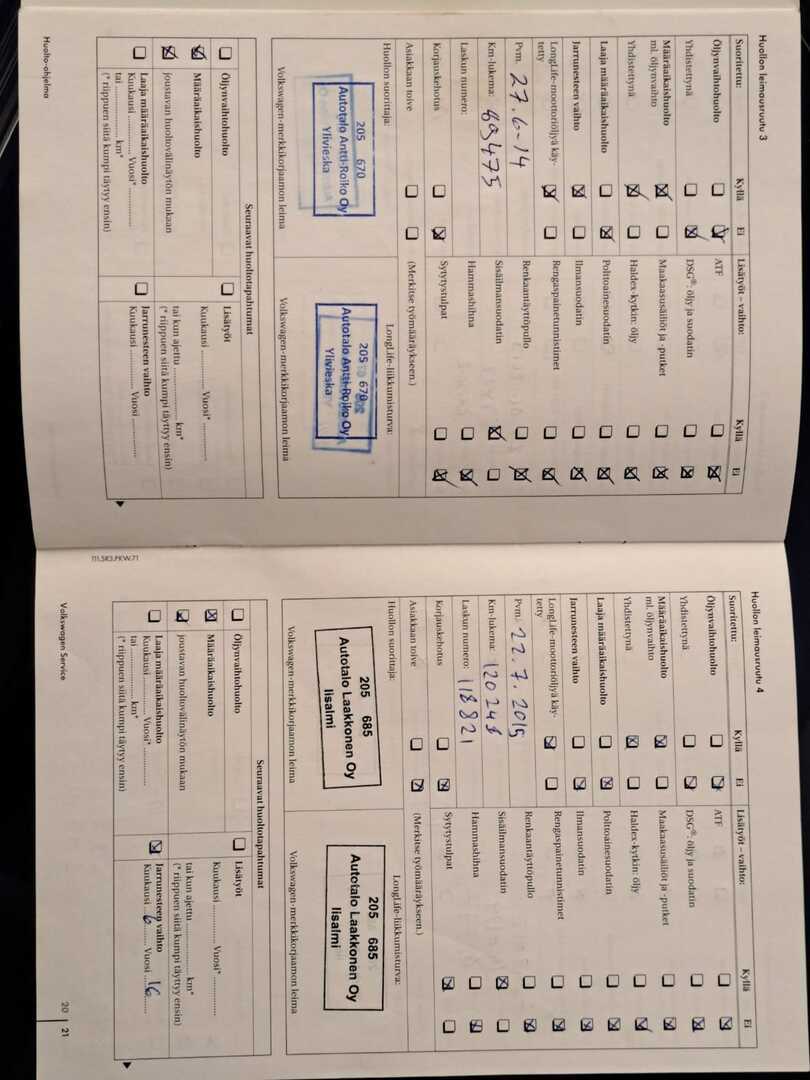 Huollon leimausruutu 3
Suoritettu: Kyllä Ei
Öljynvaihtohuolto ☐ ☒
Yhdistettynä ☐ ☒
Määräaikaishuolto
ml. öljynvaihto ☒ ☐
Yhdistettynä ☒ ☐
Laaja määräaikaishuolto ☐ ☒
Jarrunesteen vaihto ☒ ☐
LongLife-moottoriöljyä käy-
tetty ☒ ☐
Pvm. 27.6-14
Km-lukema: 89475
Laskun numero:
Korjauskehotus ☐ ☒
Asiakkaan toive ☐ ☐
Lisätyöt – vaihto: Kyllä Ei
ATF ☐ ☒
DSG®: öljy ja suodatin ☐ ☒
Maakaasusäiliöt ja -putket ☐ ☒
Haldex-kytkin: öljy ☐ ☒
Polttoainesuodatin ☐ ☒
Ilmansuodatin ☐ ☒
Rengaspainetunnistimet ☐ ☒
Renkaantäyttöpullo ☐ ☒
Sisäilmansuodatin ☒ ☐
Hammashihna ☐ ☒
Sytytystulpat ☐ ☒
(Merkitse työmääräykseen.)
Huollon suorittaja:
205 670
Autotalo Antti-Roiko Oy
Ylivieska
Volkswagen-merkkikorjaamon leima
LongLife-liikkumisturva:
205 670
Autotalo Antti-Roiko Oy
Ylivieska
Volkswagen-merkkikorjaamon leima
Seuraavat huoltotapahtumat
☐ Öljynvaihtohuolto
☒ Määräaikaishuolto
☒ joustavan huoltovälinäytön mukaan
☐ Laaja määräaikaishuolto
Kuukausi ............. Vuosi* .............
tai ............. km*
(* riippuen siitä kumpi täytyy ensin)
☐ Lisätyöt
Kuukausi ............. Vuosi* .............
tai kun ajettu ............. km*
(* riippuen siitä kumpi täyttyy ensin)
☐ Jarrunesteen vaihto
Kuukausi ............. Vuosi .............
Huolto-ohjelma
111.5R3.PKW.71
Huollon leimausruutu 4
Suoritettu: Kyllä Ei
Öljynvaihtohuolto ☐ ☒
Yhdistettynä ☐ ☒
Määräaikaishuolto
ml. öljynvaihto ☒ ☐
Yhdistettynä ☒ ☐
Laaja määräaikaishuolto ☐ ☒
Jarrunesteen vaihto ☐ ☒
LongLife-moottoriöljyä käy-
tetty ☒ ☐
Pvm: 22.7.2015
Km-lukema: 120248
Laskun numero: 118821
Korjauskehotus ☐ ☒
Asiakkaan toive ☐ ☒
Lisätyöt – vaihto: Kyllä Ei
ATF ☐ ☒
DSG®: öljy ja suodatin ☐ ☒
Maakaasusäiliöt ja -putket ☐ ☒
Haldex-kytkin: öljy ☐ ☒
Polttoainesuodatin ☐ ☒
Ilmansuodatin ☐ ☒
Rengaspainetunnistimet ☐ ☒
Renkaantäyttöpullo ☐ ☒
Sisäilmansuodatin ☒ ☐
Hammashihna ☐ ☒
Sytytystulpat ☒ ☐
(Merkitse työmääräykseen.)
Huollon suorittaja:
205 685
Autotalo Laakkonen Oy
Iisalmi
Volkswagen-merkkikorjaamon leima
LongLife-liikkumisturva:
205 685
Autotalo Laakkonen Oy
Iisalmi
Volkswagen-merkkikorjaamon leima
Seuraavat huoltotapahtumat
☐ Öljynvaihtohuolto
☒ Määräaikaishuolto
☒ joustavan huoltovälinäytön mukaan
☐ Laaja määräaikaishuolto
Kuukausi ............. Vuosi* .............
tai ............. km*
(* riippuen siitä kumpi täytyy ensin)
☐ Lisätyöt
Kuukausi ............. Vuosi* .............
tai kun ajettu ............. km*
(* riippuen siitä kumpi täyttyy ensin)
☒ Jarrunesteen vaihto
Kuukausi 6 Vuosi 16
Volkswagen Service
20 | 21